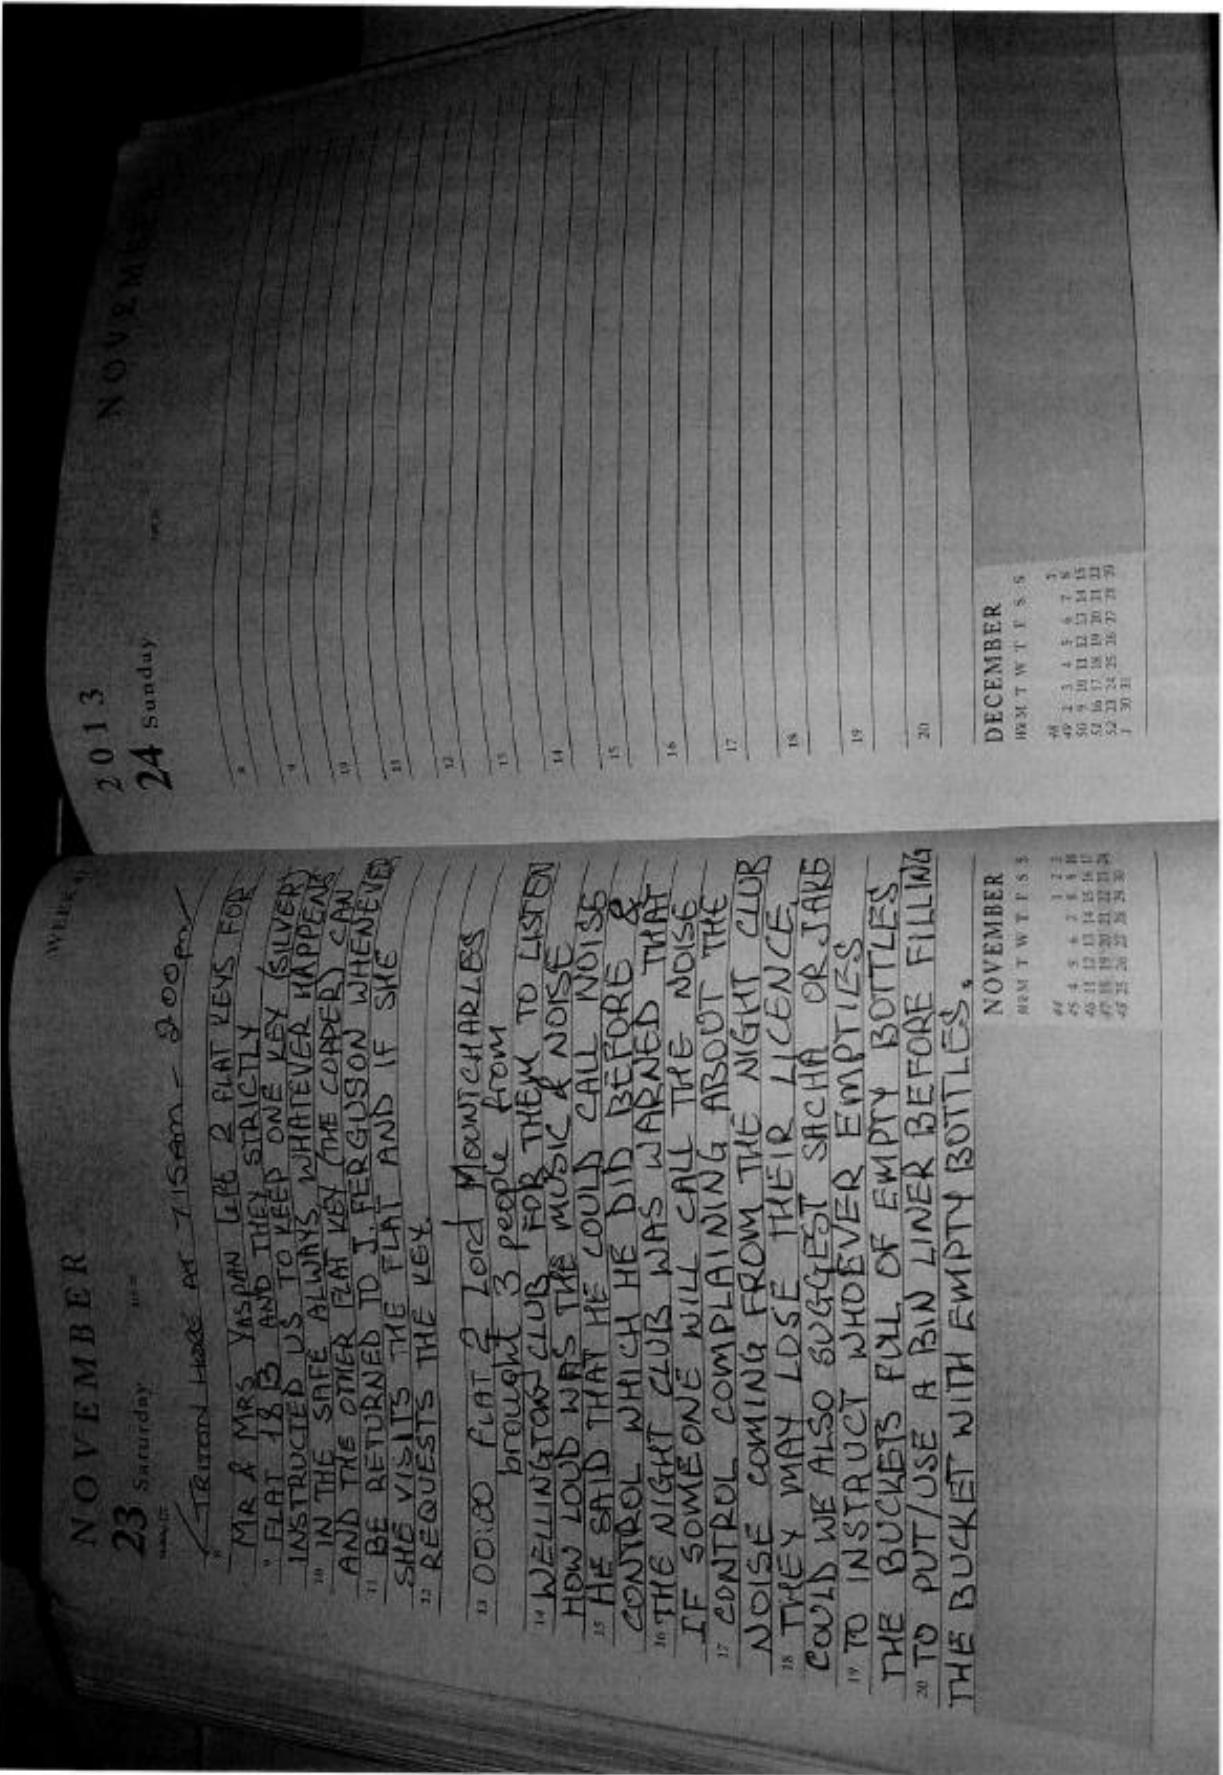 NOVEMBER
WEEK 47
23 Saturday
TRITON HERE AT 7 15AM - 2 00pm
MR & MRS YASPAN left 2 FLAT KEYS FOR
FLAT 18 B AND THEY STRICTLY
INSTRUCTED US TO KEEP ONE KEY (SILVER)
10 IN THE SAFE ALWAYS WHATEVER HAPPENS
AND THE OTHER FLAT KEY (THE COPPER) CAN
11 BE RETURNED TO J. FERGUSON WHENEVER
SHE VISITS THE FLAT AND IF SHE
12 REQUESTS THE KEY.
13 00:00 FLAT 2 Lord MOUNTCHARLES
brought 3 people from
14 WELLINGTON CLUB FOR THEM TO LISTEN
HOW LOUD WAS THE MUSIC & NOISE
15 HE SAID THAT HE COULD CALL NOISE
CONTROL WHICH HE DID BEFORE &
16 THE NIGHT CLUB WAS WARNED THAT
IF SOMEONE WILL CALL THE NOISE
17 CONTROL COMPLAINING ABOUT THE
NOISE COMING FROM THE NIGHT CLUB
18 THEY MAY LOSE THEIR LICENCE.
COULD WE ALSO SUGGEST SACHA OR JAKE
19 TO INSTRUCT WHOEVER EMPTIES
THE BUCKETS FULL OF EMPTY BOTTLES
20 TO PUT/USE A BIN LINER BEFORE FILLING
THE BUCKET WITH EMPTY BOTTLES.
NOVEMBER
WK M T W T F S S
44 1 2 3
45 4 5 6 7 8 9 10
46 11 12 13 14 15 16 17
47 18 19 20 21 22 23 24
48 25 26 27 28 29 30
2013
NOVEMBER
24 Sunday
8
9
10
11
12
13
14
15
16
17
18
19
20
DECEMBER
WK M T W T F S S
48 1
49 2 3 4 5 6 7 8
50 9 10 11 12 13 14 15
51 16 17 18 19 20 21 22
52 23 24 25 26 27 28 29
1 30 31